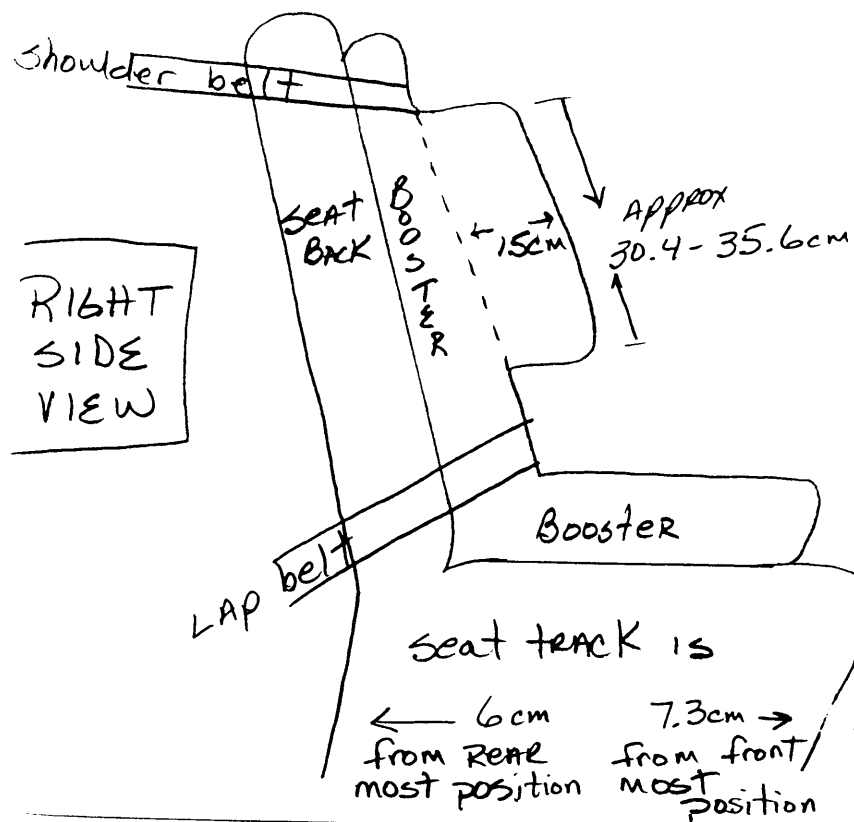 shoulder belt
SEAT
BACK
BOOSTER
15cm
APPROX
30.4 - 35.6cm
RIGHT
SIDE
VIEW
Booster
LAP belt
seat TRACK is
6cm
from REAR
most position
7.3cm
from front
most
position